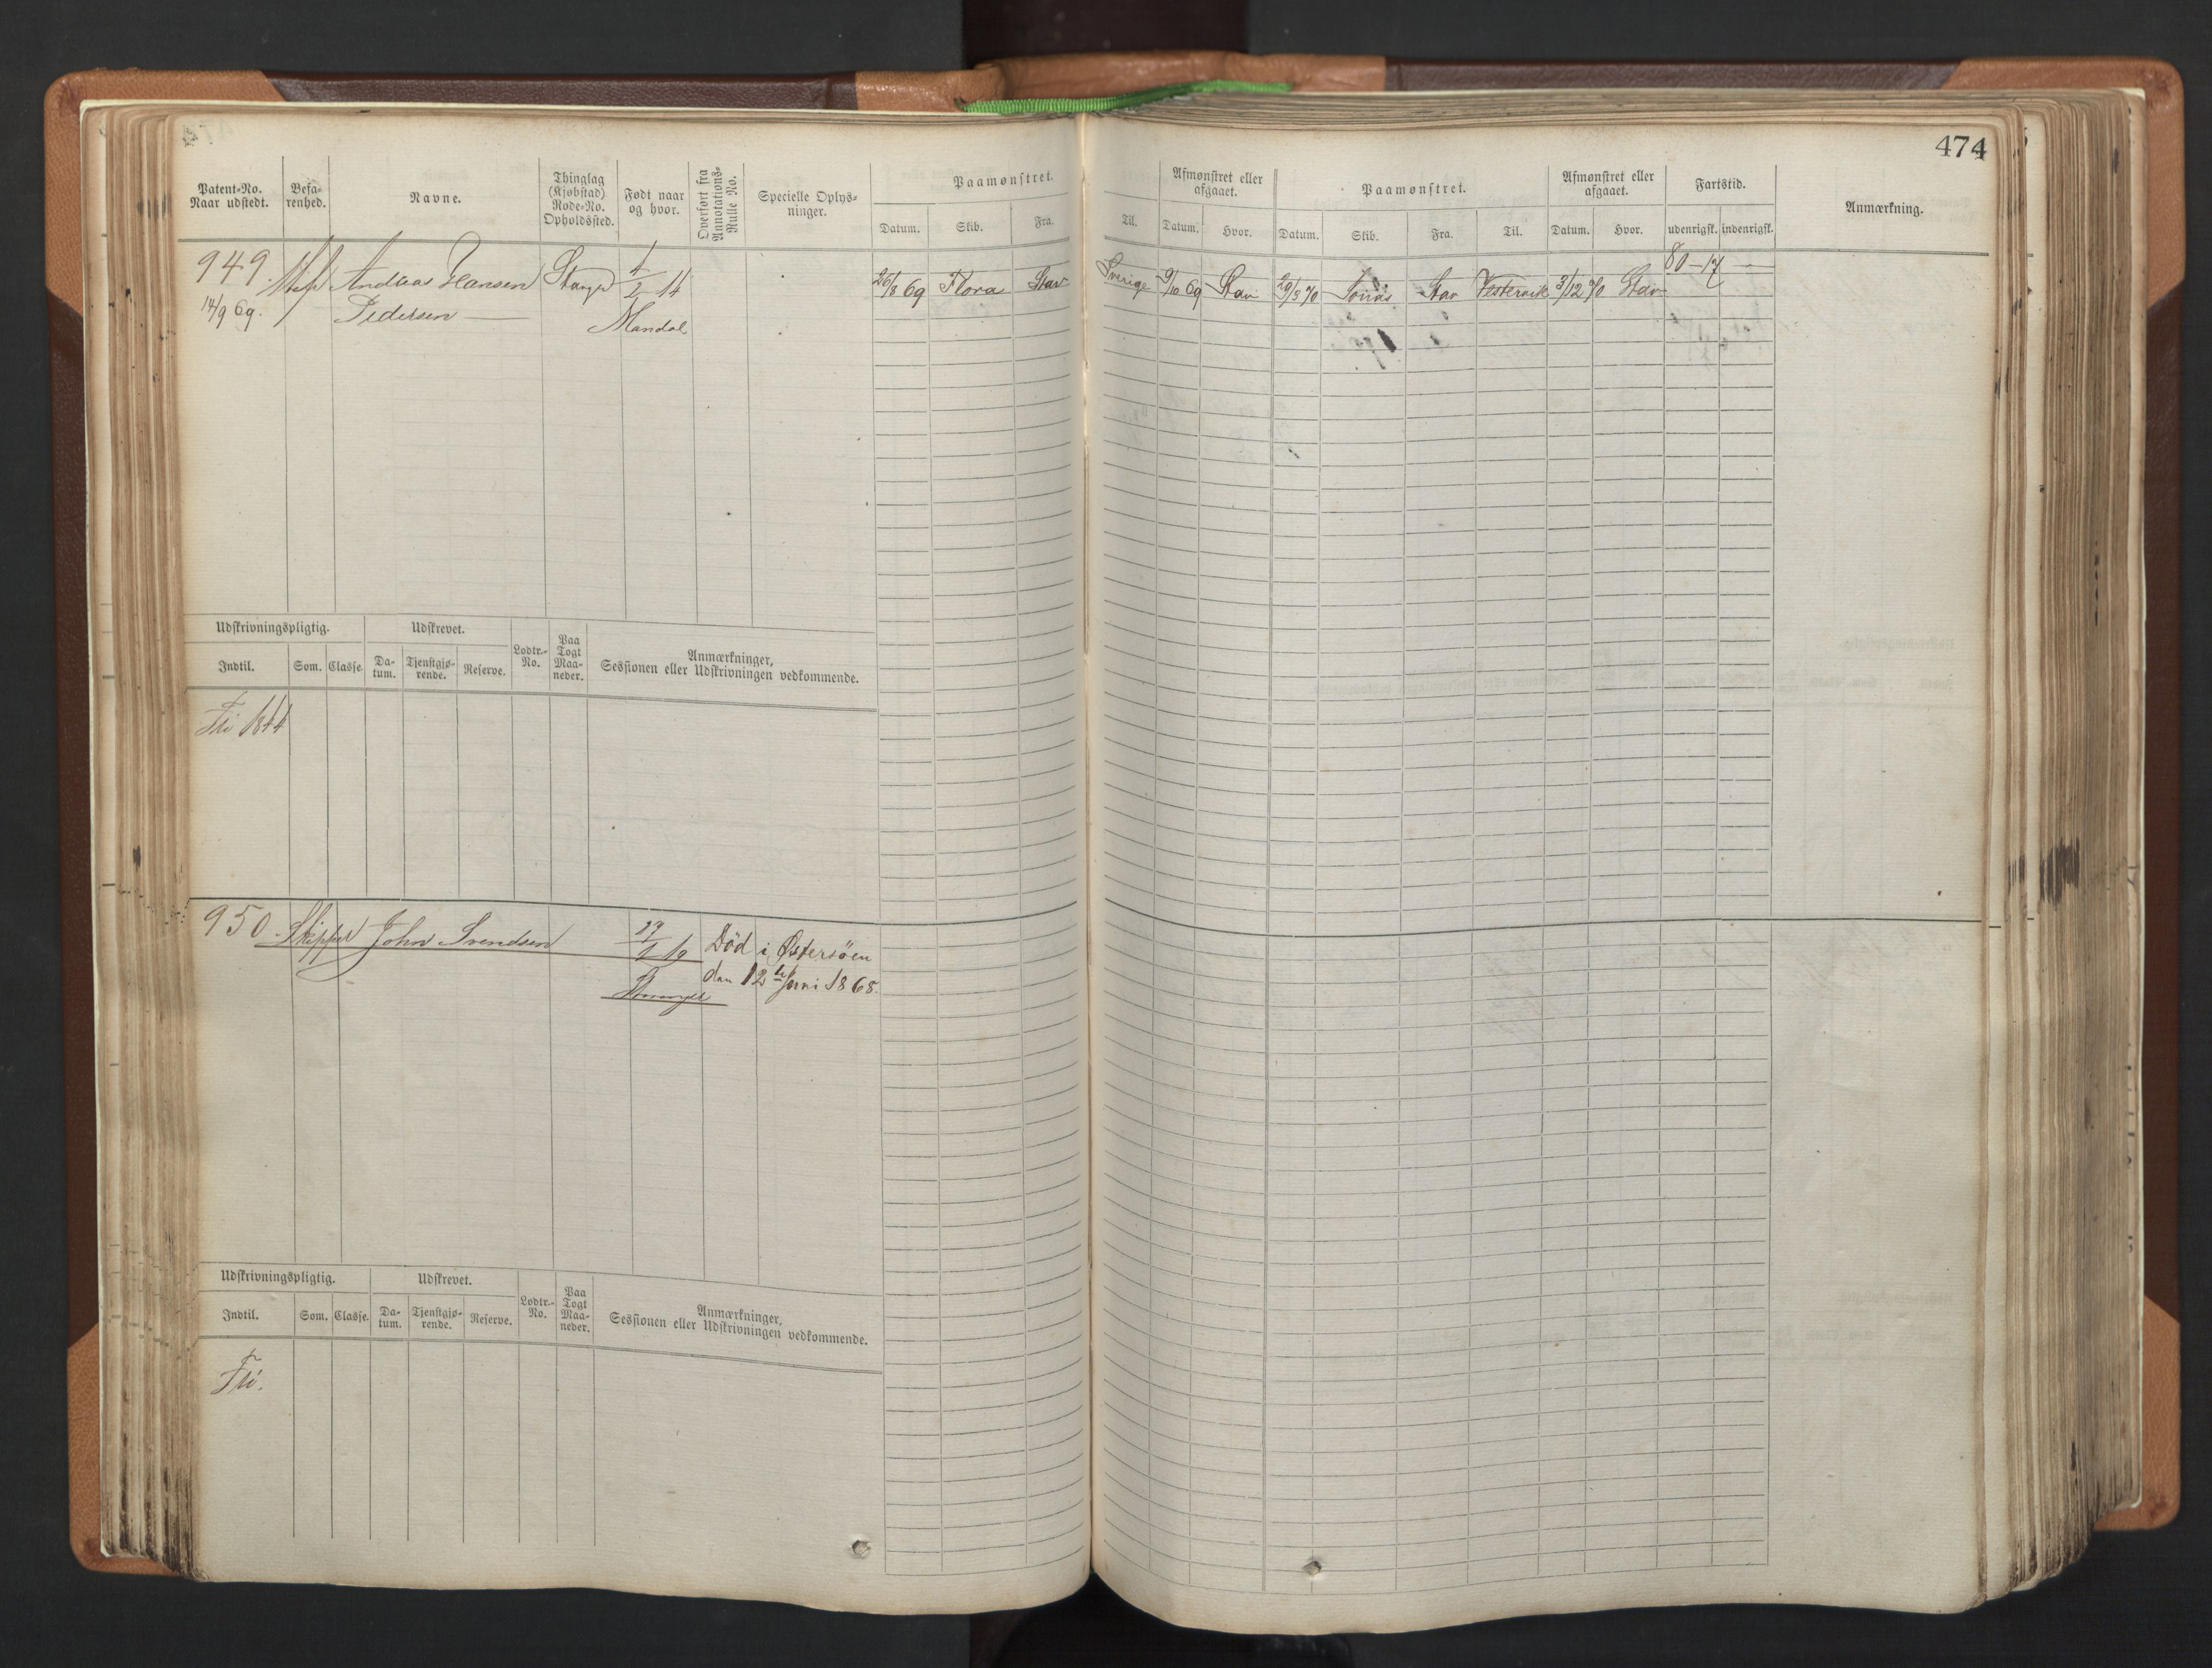 474
Patent-No. Naar udstedt.
Befa-renhed.
Navne.
Thinglag (Kjøbstad) Rode-No. Opholdssted.
Født naar og hvor.
Overført fra Annotations-Rulle No.
Specielle Oplys-ninger.
Paamønstret.
Datum. Skib. Fra. Til.
Afmønstret eller afgaaet.
Datum. Hvor.
Paamønstret.
Datum. Skib. Fra. Til.
Afmønstret eller afgaaet.
Datum. Hvor.
Fartstid.
udenrigsk. indenrigsk.
Anmærkning.
80-17 —
949 Andreas Hansen 26/8 69 Flora Stav Sverige 9/10 69 Stav 29/3 70 Stav Vestervik 3/12 70 Stav
14/9 69. Pedersen — Mandal
Udskrivningspligtig. Udskrevet. Lodtr.-No. Paa Togt Maa-neder. Anmærkninger, Sessionen eller Udskrivningen vedkommende.
Indtil. Som. Classe. Da-tum. Tjenstgjø-rende. Reserve.
Fri 1844
950 Skipper John Svendsen Död i Østersöen
den 12te Juni 1868.
Udskrivningspligtig. Udskrevet. Lodtr.-No. Paa Togt Maa-neder. Anmærkninger, Sessionen eller Udskrivningen vedkommende.
Indtil. Som. Classe. Da-tum. Tjenstgjø-rende. Reserve.
Fri.